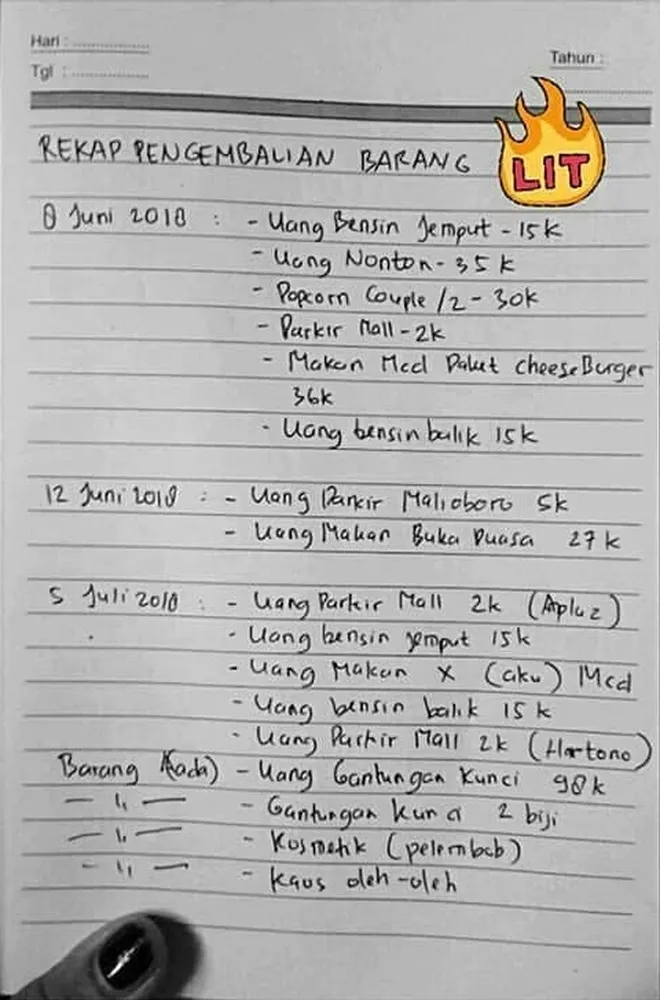 Hari : ....................
Tgl : ....................
Tahun : ....................
LIT
REKAP PENGEMBALIAN BARANG
8 Juni 2018 : - Uang Bensin Jemput - 15k
- Uang Nonton - 35k
- Popcorn Couple /2 - 30k
- Parkir Mall - 2k
- Makan Mcd Paket cheese Burger
36k
- Uang bensin balik 15k
12 Juni 2018 : - Uang Parkir Malioboro 5k
- Uang Makan Buka Puasa 27k
5 Juli 2018 : - Uang Parkir Mall 2k (Apluz)
- Uang bensin jemput 15k
- Uang Makan X (aku) Mcd
- Uang bensin balik 15k
- Uang Parkir Mall 2k (Hartono)
Barang (ada) - Uang Gantungan Kunci 98k
— ıı — - Gantungan Kunci 2 biji
— ıı — - Kosmetik (pelembab)
— ıı — - Kaos oleh-oleh